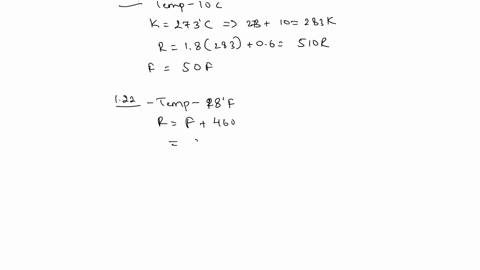 Temp - 10 C
K = 273°C => 273 + 10 = 283 K
R = 1.8 (283) + 0.6 = 510 R
F = 50 F
1.22 - Temp - 28°F
R = F + 460
=